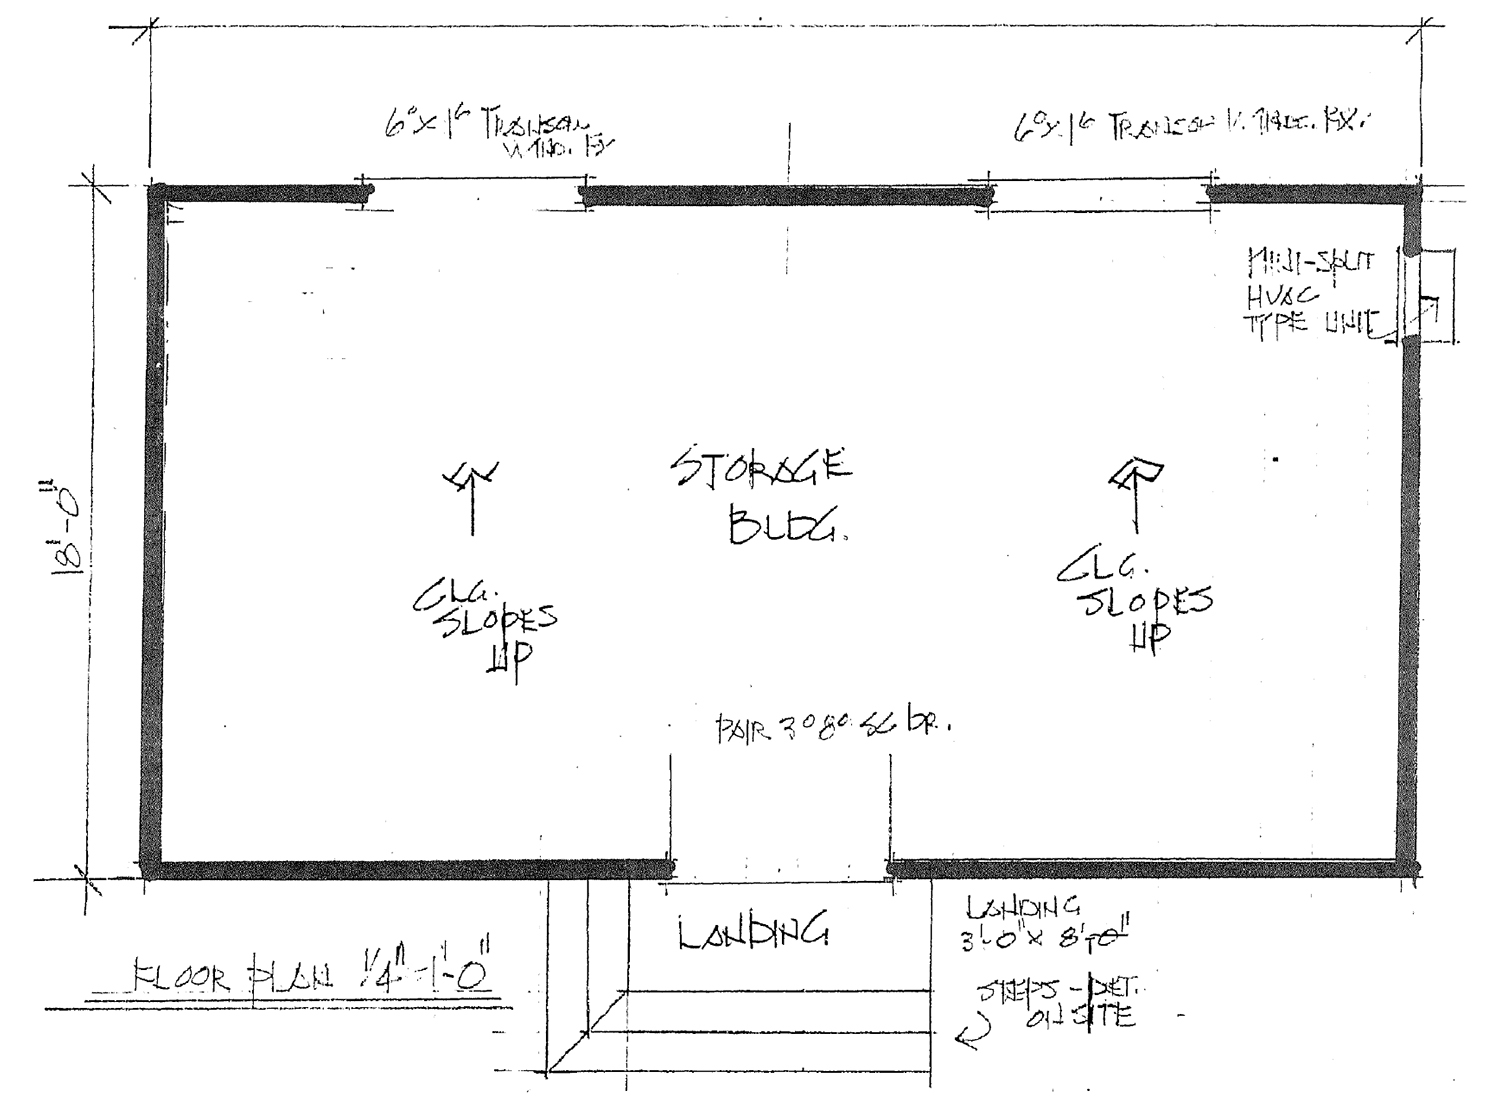 6°x1⁶ TRANSOM
WIND. FX
6°x1⁶ TRANSOM WIND. FX.
MINI-SPLIT
HVAC
TYPE UNIT
18'-0"
STORAGE
BLDG.
CLG.
SLOPES
UP
CLG.
SLOPES
UP
PAIR 3°8° SC DR.
LANDING
LANDING
3'-0" x 8'-0"
STEPS - DET.
ON SITE
FLOOR PLAN 1/4"=1'-0"